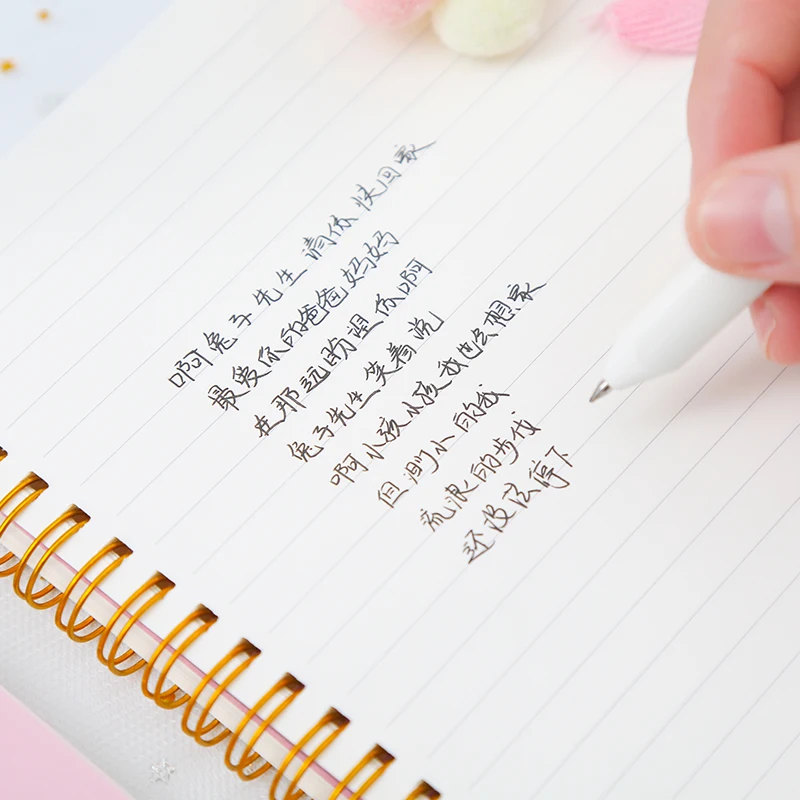 啊兔子先生请你快回家
最爱你的爸爸妈妈
在那远盼望你啊
兔子先生笑着说
啊小孩小孩我也么想家
但渺小的我
流浪的步伐
还没法停下